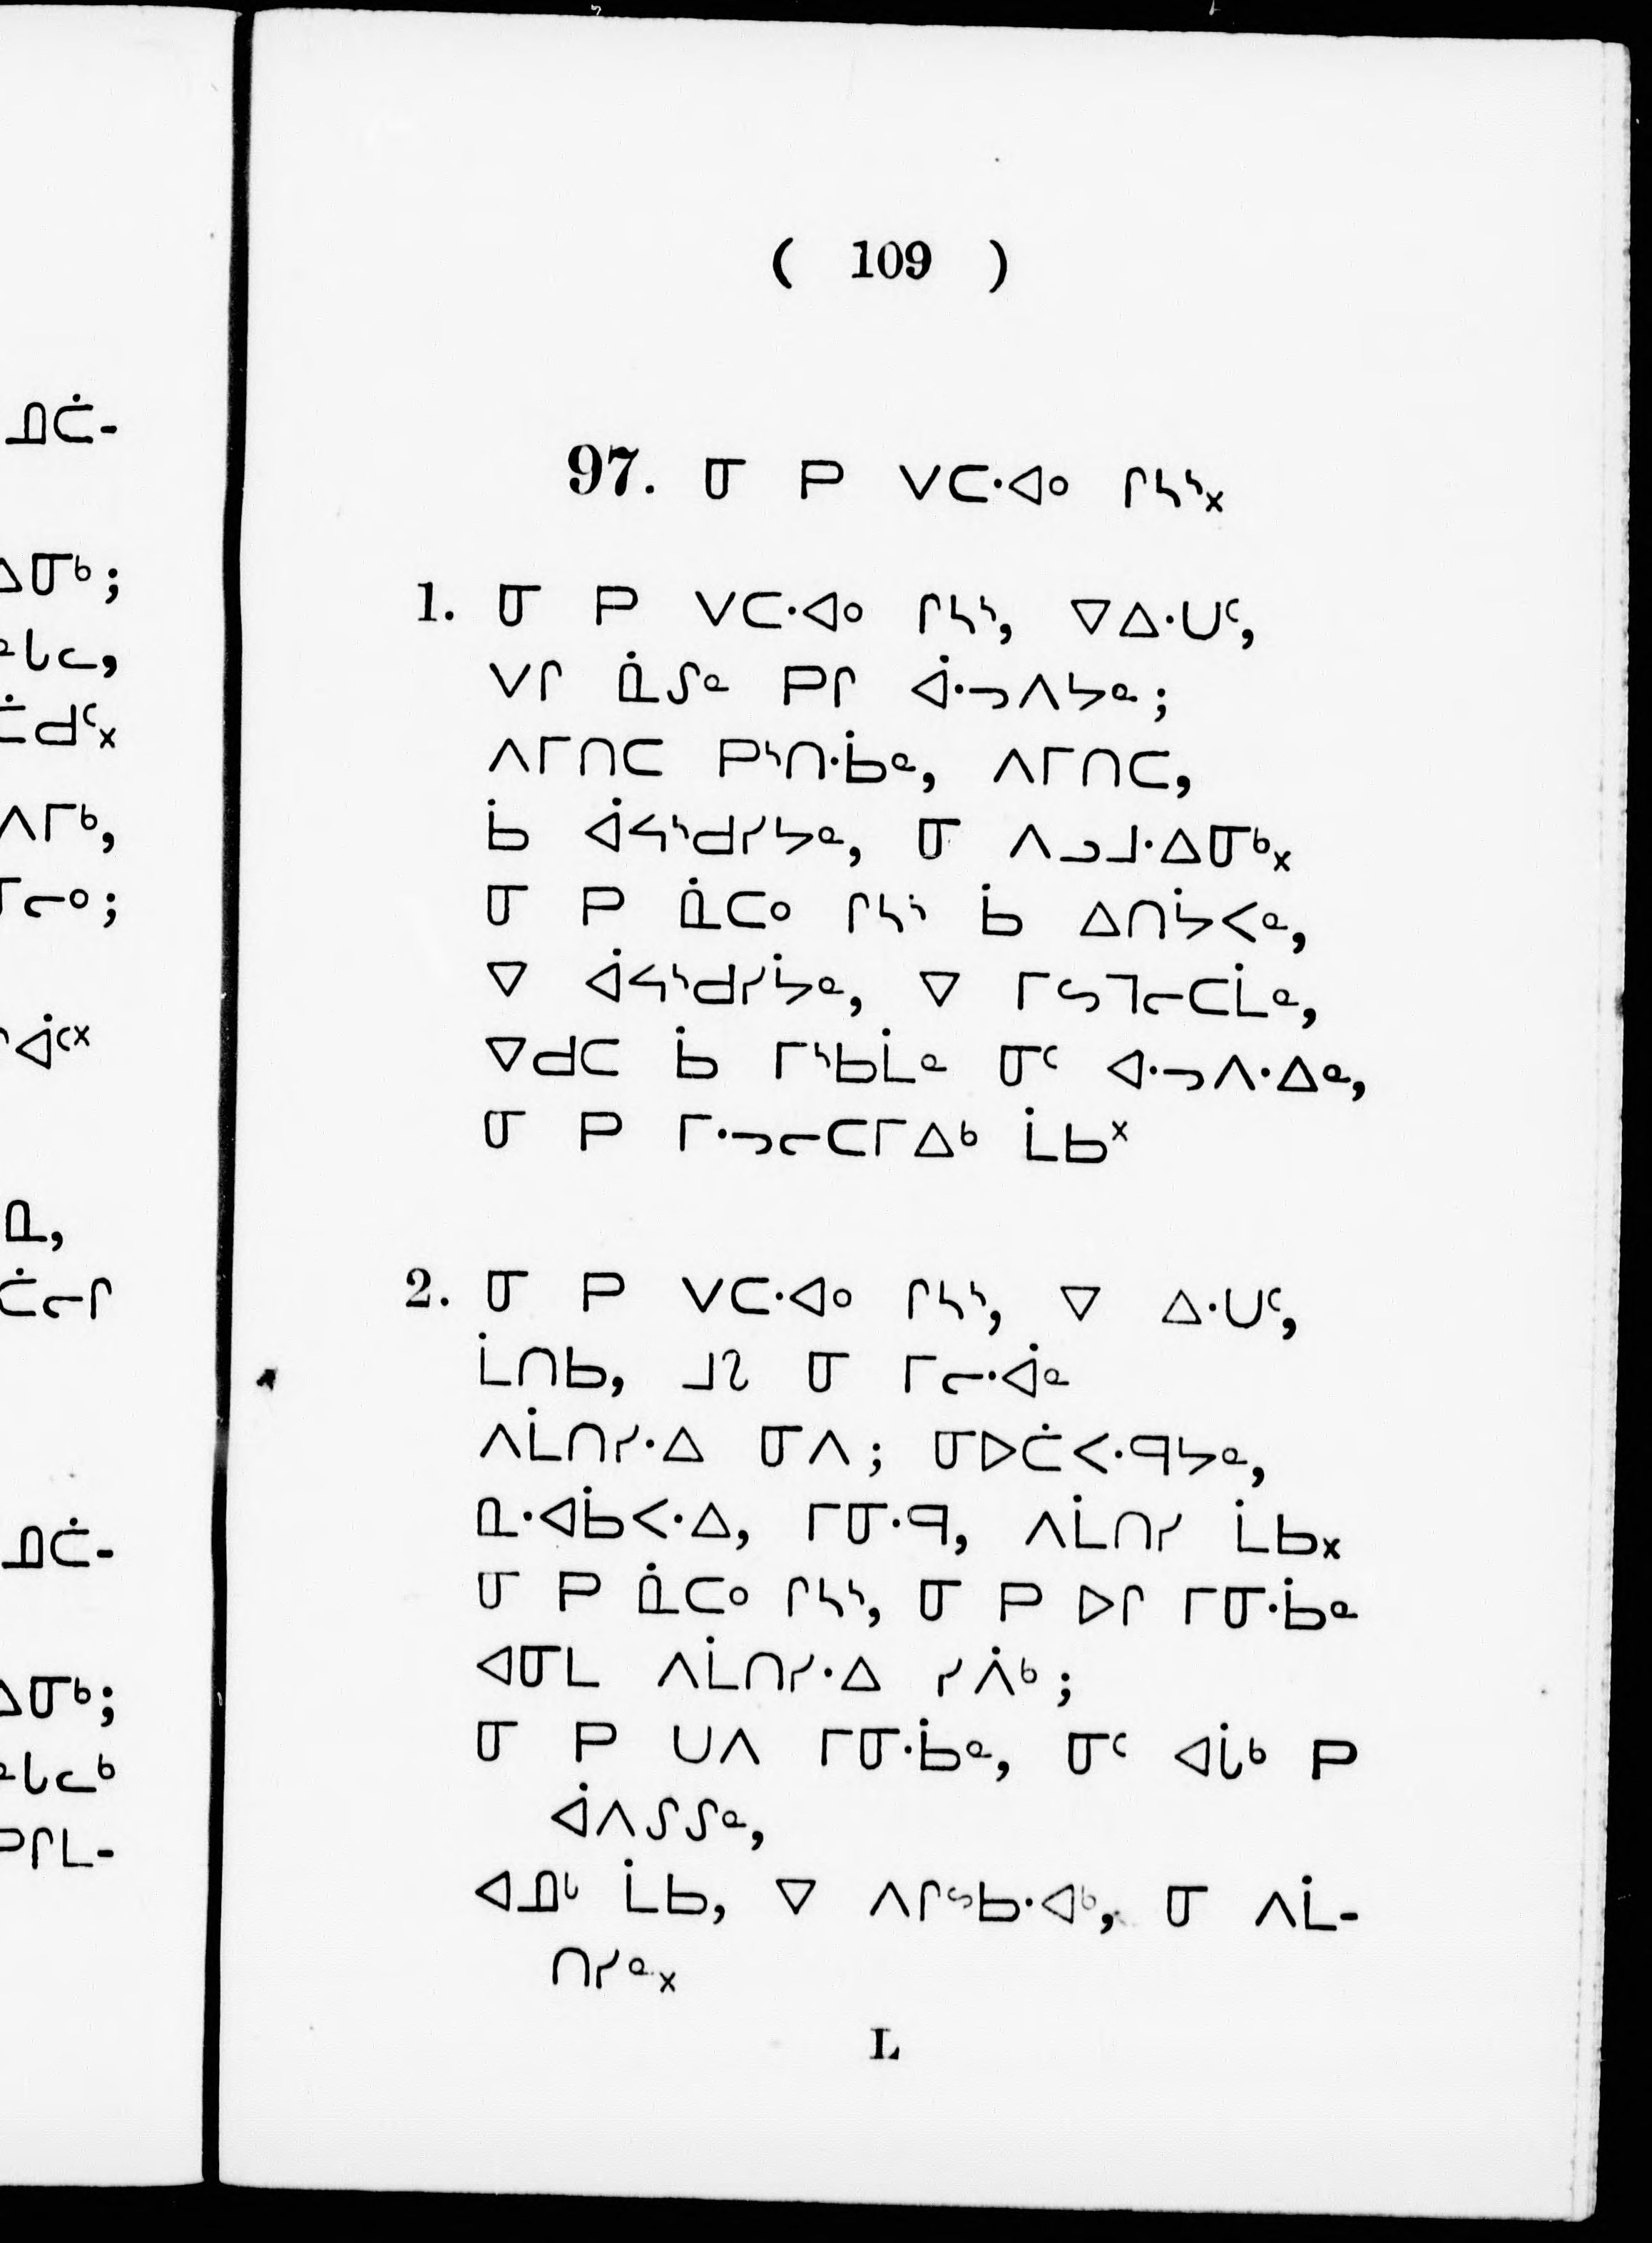 ( 109 )
97. ᓂ ᑭ ᐯᑕᐧᐊᐤ ᒋᓴᔅ᙮
1. ᓂ ᑭ ᐯᑕᐧᐊᐤ ᒋᓴᔅ, ᐁᐃᐧᑌᑦ,
ᐯᒋ ᓈᔑᓐ ᑭᒋ ᐋᐧᓓᐱᔭᓐ;
ᐱᒥᑎᑕ ᑭᔅᑎᐧᑳᓐ, ᐱᒥᑎᑕ,
ᑳ ᐋᔦᔅᑯᓯᔭᓐ, ᓂ ᐱᓗᒧᐧᐃᓂᒃ᙮
ᓂ ᑭ ᓈᑕᐤ ᒋᓴᔅ ᑳ ᐃᑎᔮᐸᓐ,
ᐁ ᐋᔦᔅᑯᓯᔮᓐ, ᐁ ᒥᔕᒣᓕᑕᒫᓐ,
ᐁᑯᑕ ᑳ ᒥᔅᑲᒫᓐ ᓂᑦ ᐊᐧᓓᐱᐧᐃᓐ,
ᓂ ᑭ ᒥᐧᓓᓕᑕᒥᐃᒃ ᒫᑲ᙮
2. ᓂ ᑭ ᐯᑕᐧᐊᐤ ᒋᓴᔅ, ᐁ ᐃᐧᑌᑦ,
ᒫᑎᑲ, ᒧᔤ ᓂ ᒥᓕᐧᐋᓐ
ᐱᒫᑎᓯᐧᐃ ᓂᐱ; ᓂᐅᑖᐸᐧᑫᔭᓐ,
ᓇᐧᐊᑳᐸᐧᐃ, ᒥᓂᐧᑫ, ᐱᒫᑎᓯ ᒫᑲ᙮
ᓂ ᑭ ᓈᑕᐤ ᒋᓴᔅ, ᓂ ᑭ ᐅᒋ ᒥᓂᐧᑳᓐ
ᐊᓂᒪ ᐱᒫᑎᓯᐧᐃ ᓰᐲᒃ;
ᓂ ᑭ ᑌᐱ ᒥᓂᐧᑳᓐ, ᓂᑦ ᐊᒑᒃ ᑭ
ᐋᐱᔑᔑᓐ,
ᐊᓄᒡ ᒫᑲ, ᐁ ᐱᒋᔥᑲᐧᐊᒃ, ᓂ ᐱᒫ-
ᑎᓯᓐ᙮
L